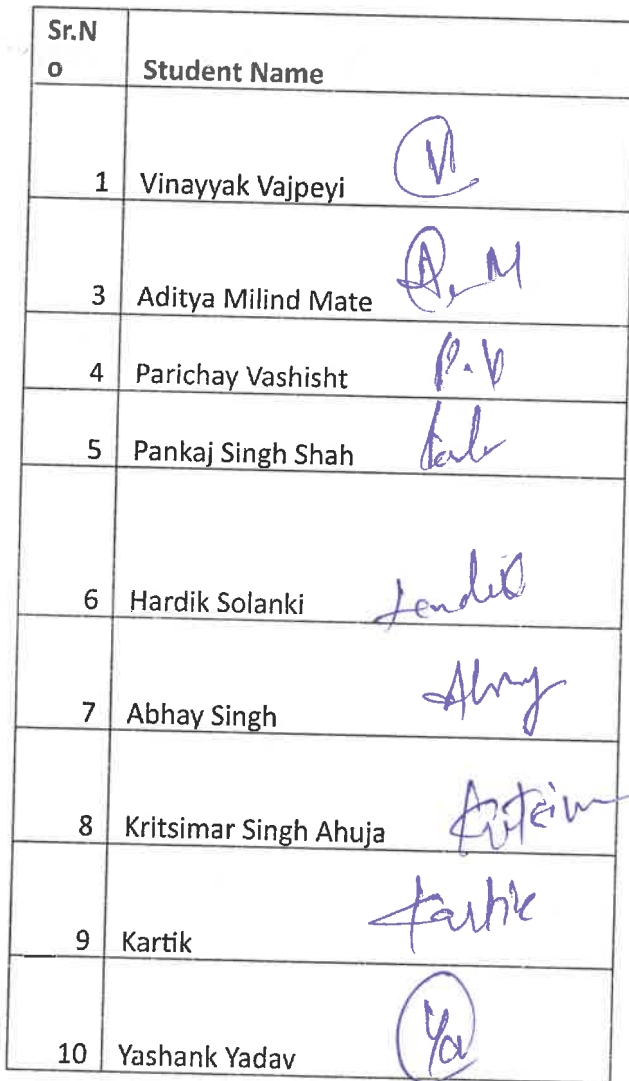 Sr.N
o Student Name
1 Vinayyak Vajpeyi V
3 Aditya Milind Mate A. M
4 Parichay Vashisht P. V
5 Pankaj Singh Shah
6 Hardik Solanki
7 Abhay Singh Abhay
8 Kritsimar Singh Ahuja
9 Kartik Kartik
10 Yashank Yadav Ya